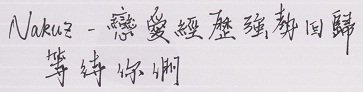 Nakuz - 戀愛經歷強勢回歸
等待你們